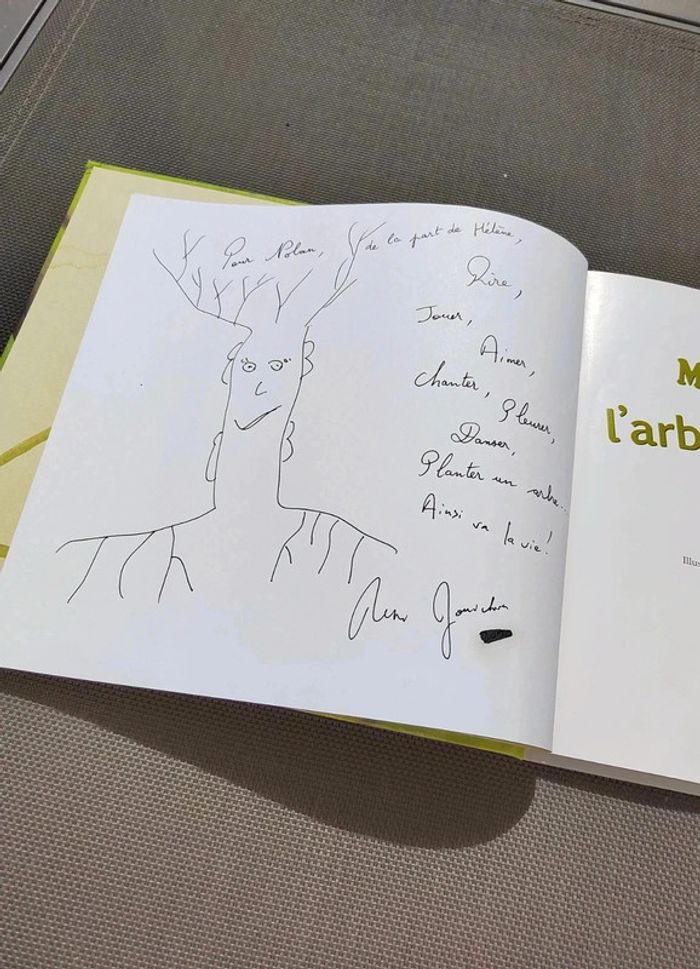 Pour Nolan, de la part de Hélène,
Rire,
Jouer,
Aimer,
Chanter, Pleurer,
Danser,
Planter un arbre...
Ainsi va la vie!
M
l'arb
Illus